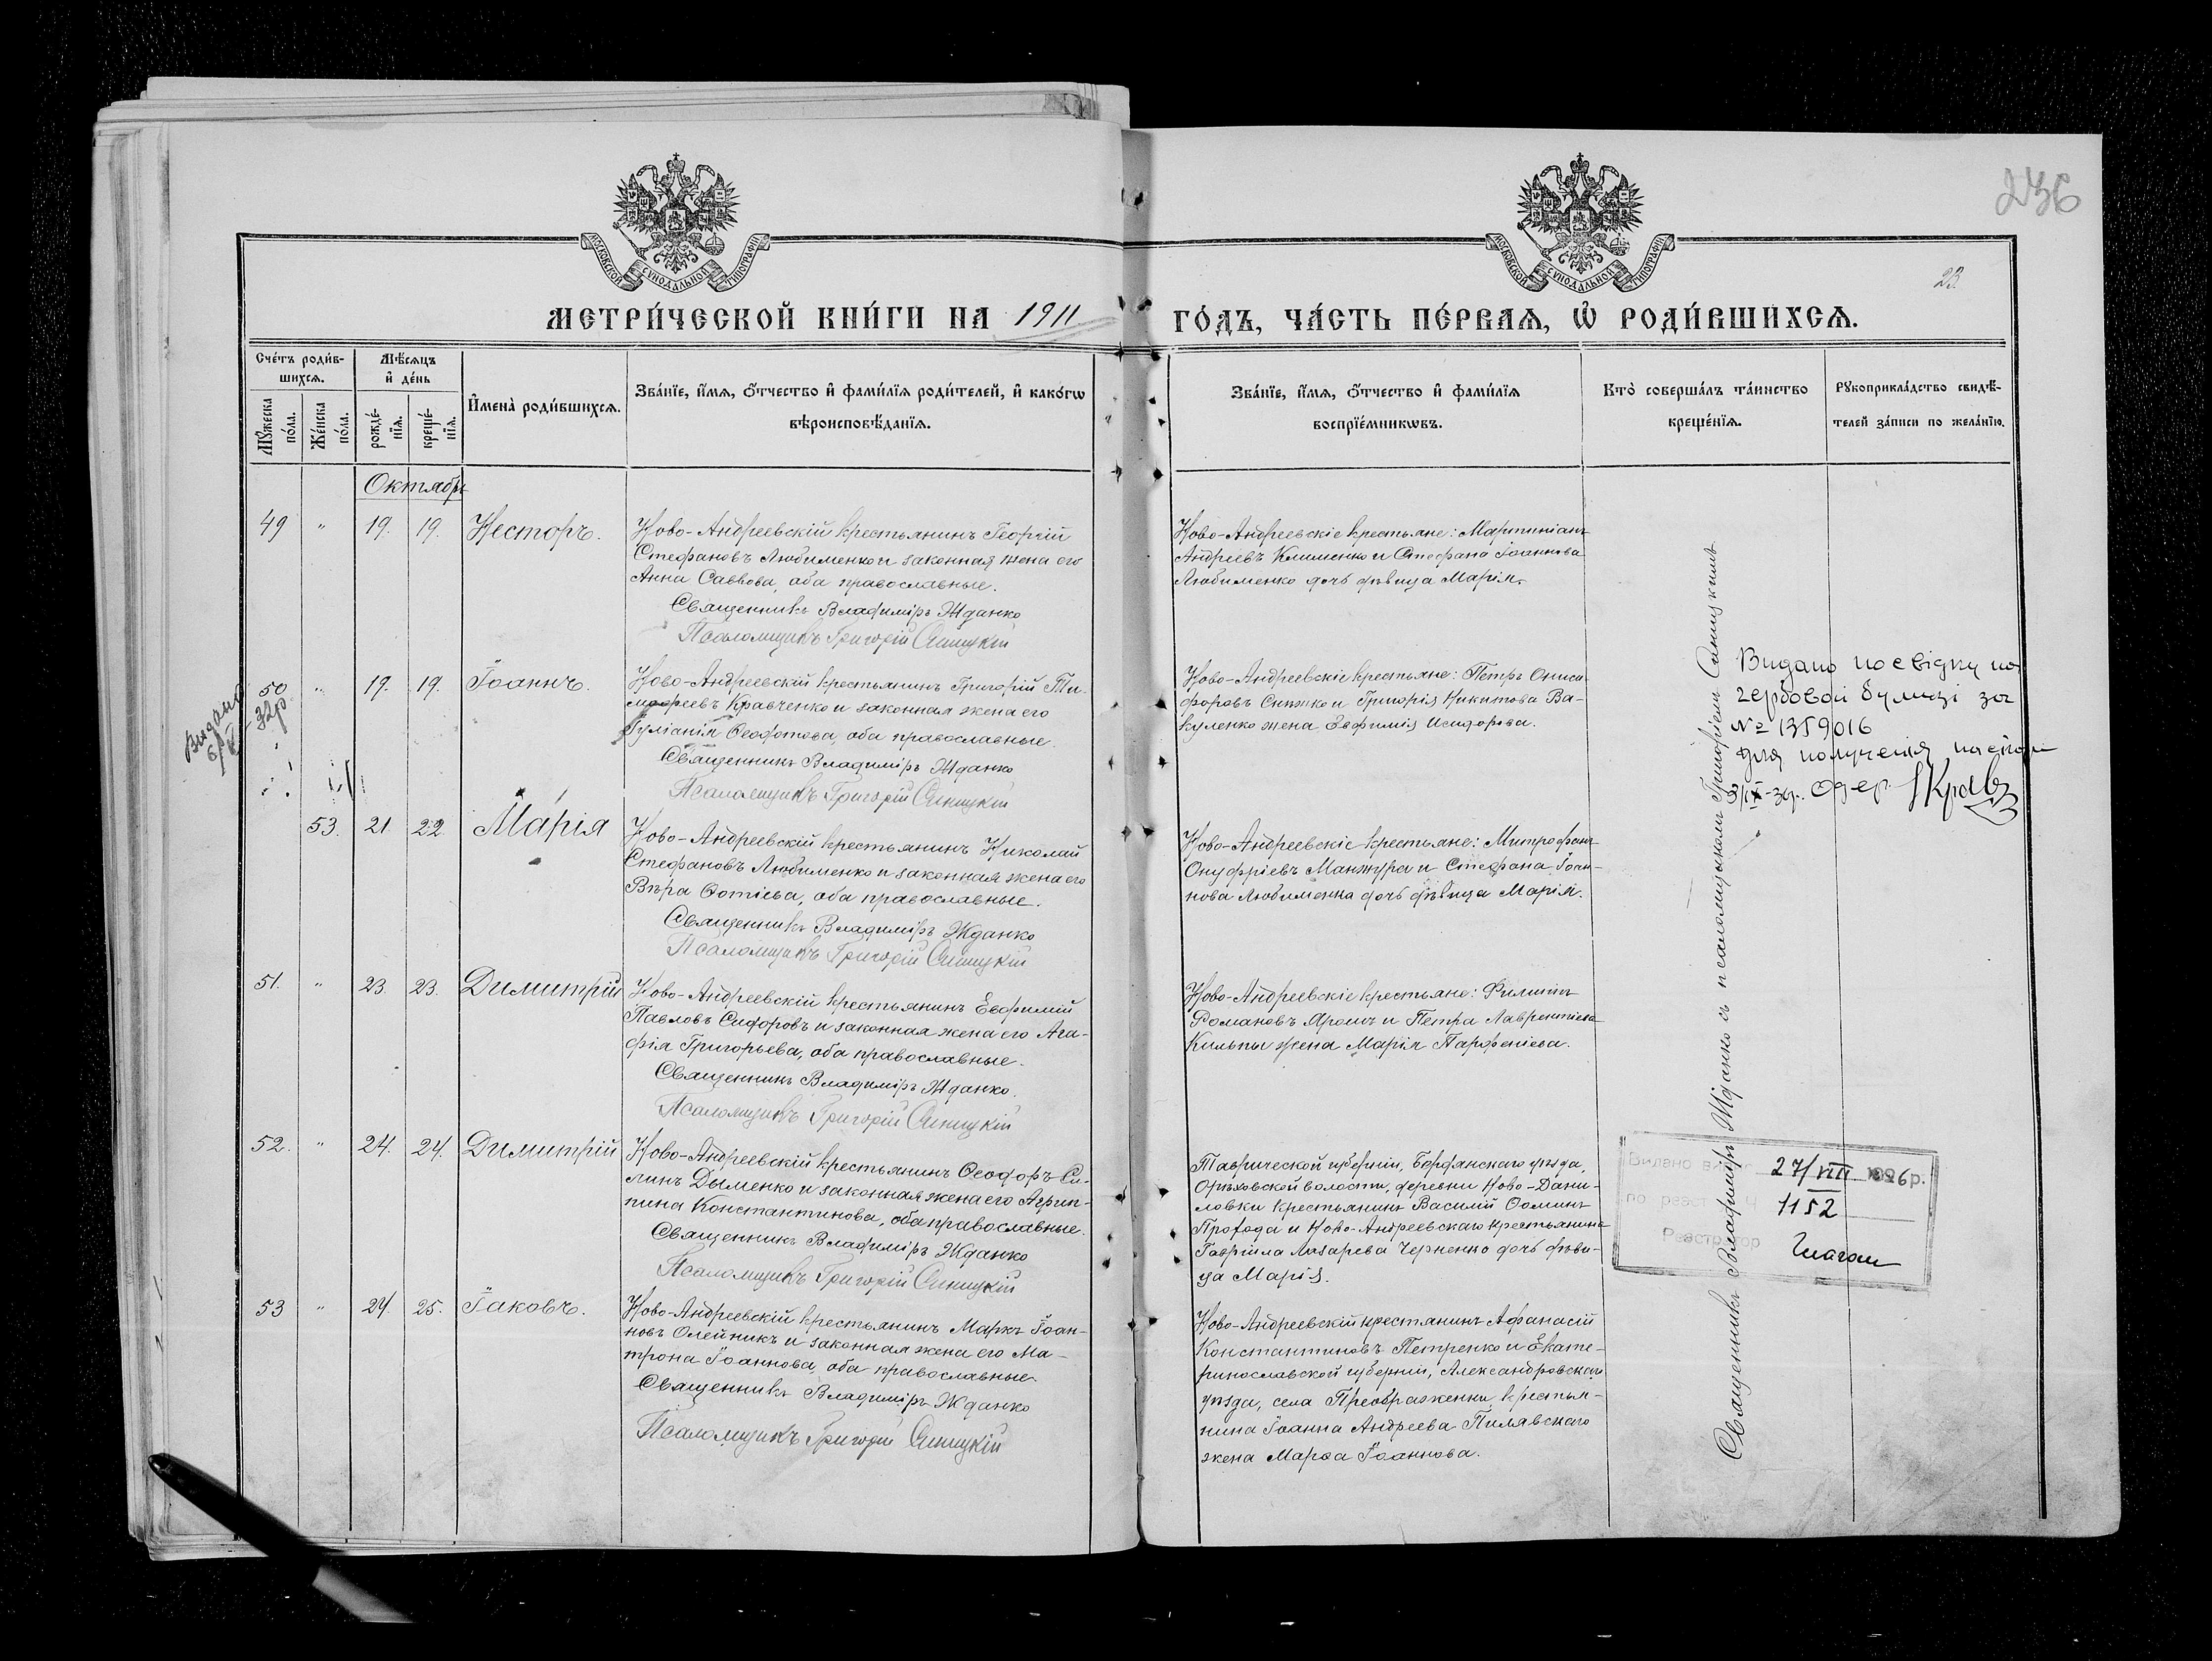 236
23.
МОСКОВСКОЙ СѴНОДАЛЬНОЙ ТИПОГРАФІИ
МОСКОВСКОЙ СѴНОДАЛЬНОЙ ТИПОГРАФІИ
МЕТРИ́ЧЕСКОЙ КНИ́ГИ НА 1911 ГО́ДЪ, ЧА́СТЬ ПЕ́РВАЯ, Ѡ҆ РОДИ́ВШИХСЯ.
Сче́тъ роди́в-
шихся.
Мѣ́сяцъ
и҆ де́нь
Мꙋ́жеска
по́ла.
Же́нска
по́ла.
рожде́-
нїя.
креще́-
нїя.
И҆мена̀ роди́вшихся.
Зва́нїе, и҆́мя, ѻ҆́тчество и҆ фами́лїя роди́телей, и҆ како́гѡ
вѣроисповѣ́данїя.
Зва́нїе, и҆́мя, ѻ҆́тчество и҆ фами́лїя
воспрїе́мникѡвъ.
Кто̀ соверша́лъ та́инство
креще́нїя.
Рꙋкоприкла́дство свидѣ́-
телей за́писи по жела́нїю.
Октябрь
49 " 19. 19. Несторъ.
Ново-Андреевскій крестьянинъ Георгій
Стефановъ Любименко и законная жена его
Анна Саввова, оба православные.
Священникъ Владиміръ Жданко
Псаломщикъ Григорій Синицкій
Ново-Андреевскіе крестьяне: Мартиніанъ
Андреевъ Клименко и Стефана Іоаннова
Любименко дочь дѣвица Марія.
50 " 19. 19. Іоаннъ.
Ново-Андреевскій крестьянинъ Григорій Ти-
мофеевъ Кравченко и законная жена его
Іуліанія Феофотова, оба православные.
Священникъ Владиміръ Жданко
Псаломщикъ Григорій Синицкій
Ново-Андреевскіе крестьяне: Петръ Ониси-
форовъ Снѣжко и Григорія Никитова Ва-
куленко жена Евфимія Исидорова.
Видано
32р
Видано посвідку на
гербовой бумазі за
№ 1359016
для получення
53. 21 22 Марія
Ново-Андреевскій крестьянинъ Николай
Стефановъ Любименко и законная жена его
Вѣра Фотіева, оба православные.
Священникъ Владиміръ Жданко
Псаломщикъ Григорій Синицкій
Ново-Андреевскіе крестьяне: Митрофанъ
Онуфріевъ Манжура и Стефана Іоан-
нова Любименка дочь дѣвица Марія.
51. " 23. 23. Димитрій
Ново-Андреевскій крестьянинъ Евфимій
Павловъ Сидоровъ и законная жена его Ага-
фія Григорьева, оба православные.
Священникъ Владиміръ Жданко.
Псаломщикъ Григорій Синицкій
Ново-Андреевскіе крестьяне: Филиппъ
Романовъ Ярошъ и Петра Лаврентіева
Кильпы жена Марія Парфеніева.
52. " 24. 24. Димитрій
Ново-Андреевскій крестьянинъ Феодоръ Си-
линъ Дыменко и законная жена его Агрип-
пина Константинова, оба православные.
Священникъ Владиміръ Жданко
Псаломщикъ Григорій Синицкій
Таврической губерніи, Бердянскаго уѣзда,
Орѣховской волости, деревни Ново-Дани-
ловки крестьянинъ Василій Фоминъ
и Ново-Андреевскаго крестьянина
Гавріила Лазарева Черненко дочь дѣви-
ца Марія.
53 " 24. 25. Іаковъ.
Ново-Андреевскій крестьянинъ Маркъ Іоан-
новъ Олейникъ и законная жена его Ма-
трона Іоаннова, оба православные.
Священникъ Владиміръ Жданко
Псаломщикъ Григорій Синицкій
Ново-Андреевскій крестянинъ Афанасій
Константиновъ Петренко и Екате-
ринославской губерніи, Александровскаго
уѣзда, села Преображенки крестья-
нина Іоанна Андреева Пилявскаго
жена Марфа Іоаннова.
Священникъ Владиміръ Жданко съ псаломщикомъ Григоріемъ Синицкимъ
Видано 27/VIII 1926р.
по реєстр. Ч 1152
Реєстратор